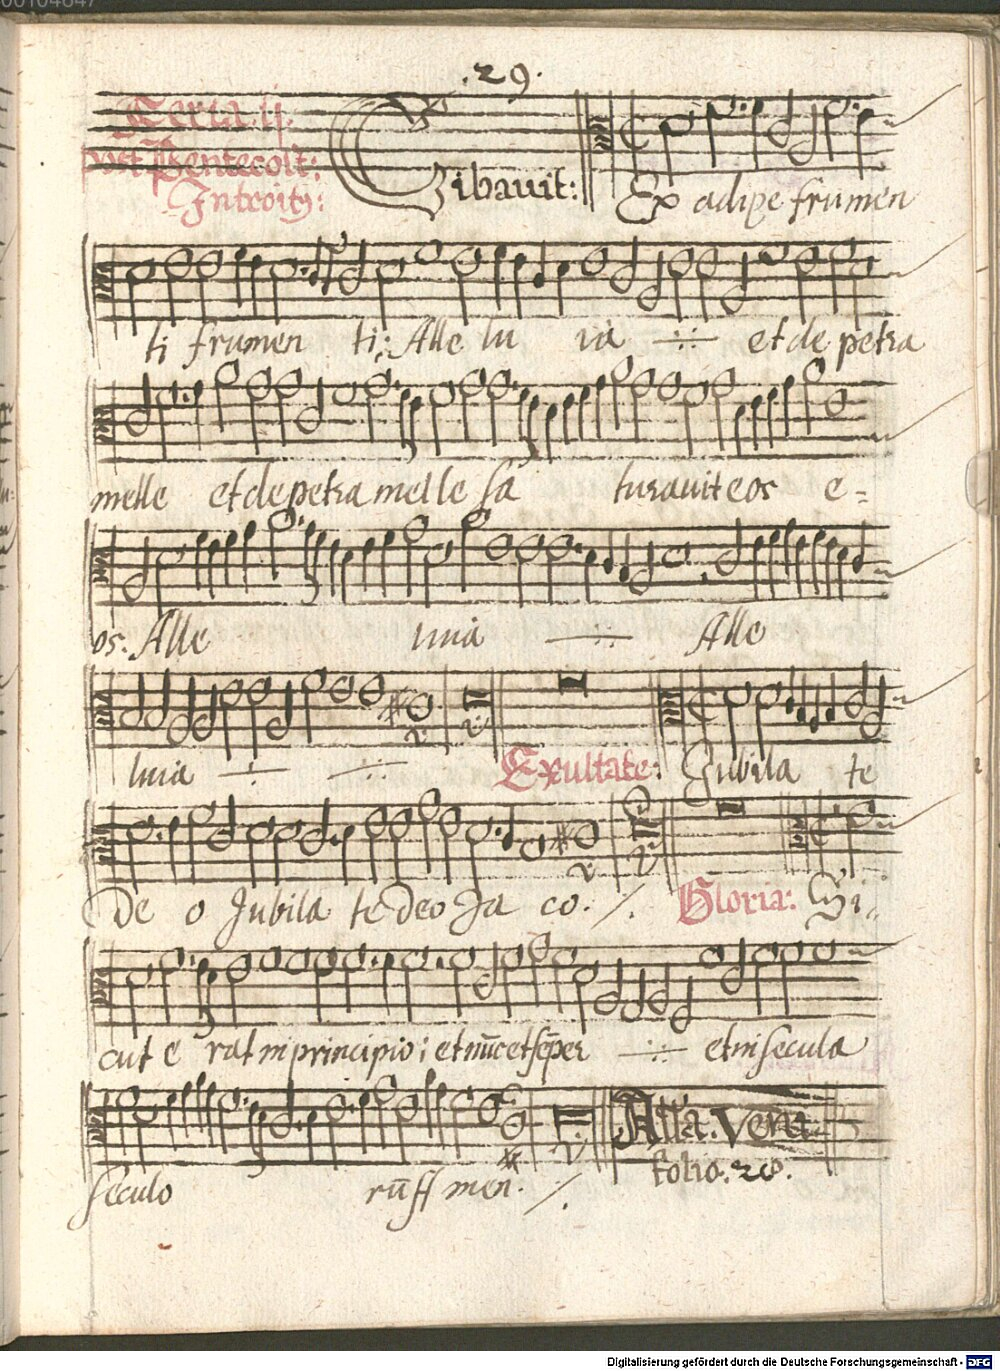 .29.
Feria.ij.
post Pentecost:
Introitꝰ:
Cibauit:
Ex adipe frumen
ti frumen ti: Alle lu ia ·÷· et de petra
melle et de petra melle sa turauit eos e=
os. Alle luia ·÷· Alle
luia ·÷· ·÷·
Exultate:
Jubila te
De o Jubila te Deo Ja co: ./.
Gloria:
Si=
cut e rat in principio: et nūc et sēper ·÷· et in secula
seculo rū ff men. ./.
Alla. Veni
folio. 28.
Digitalisierung gefördert durch die Deutsche Forschungsgemeinschaft - DFG